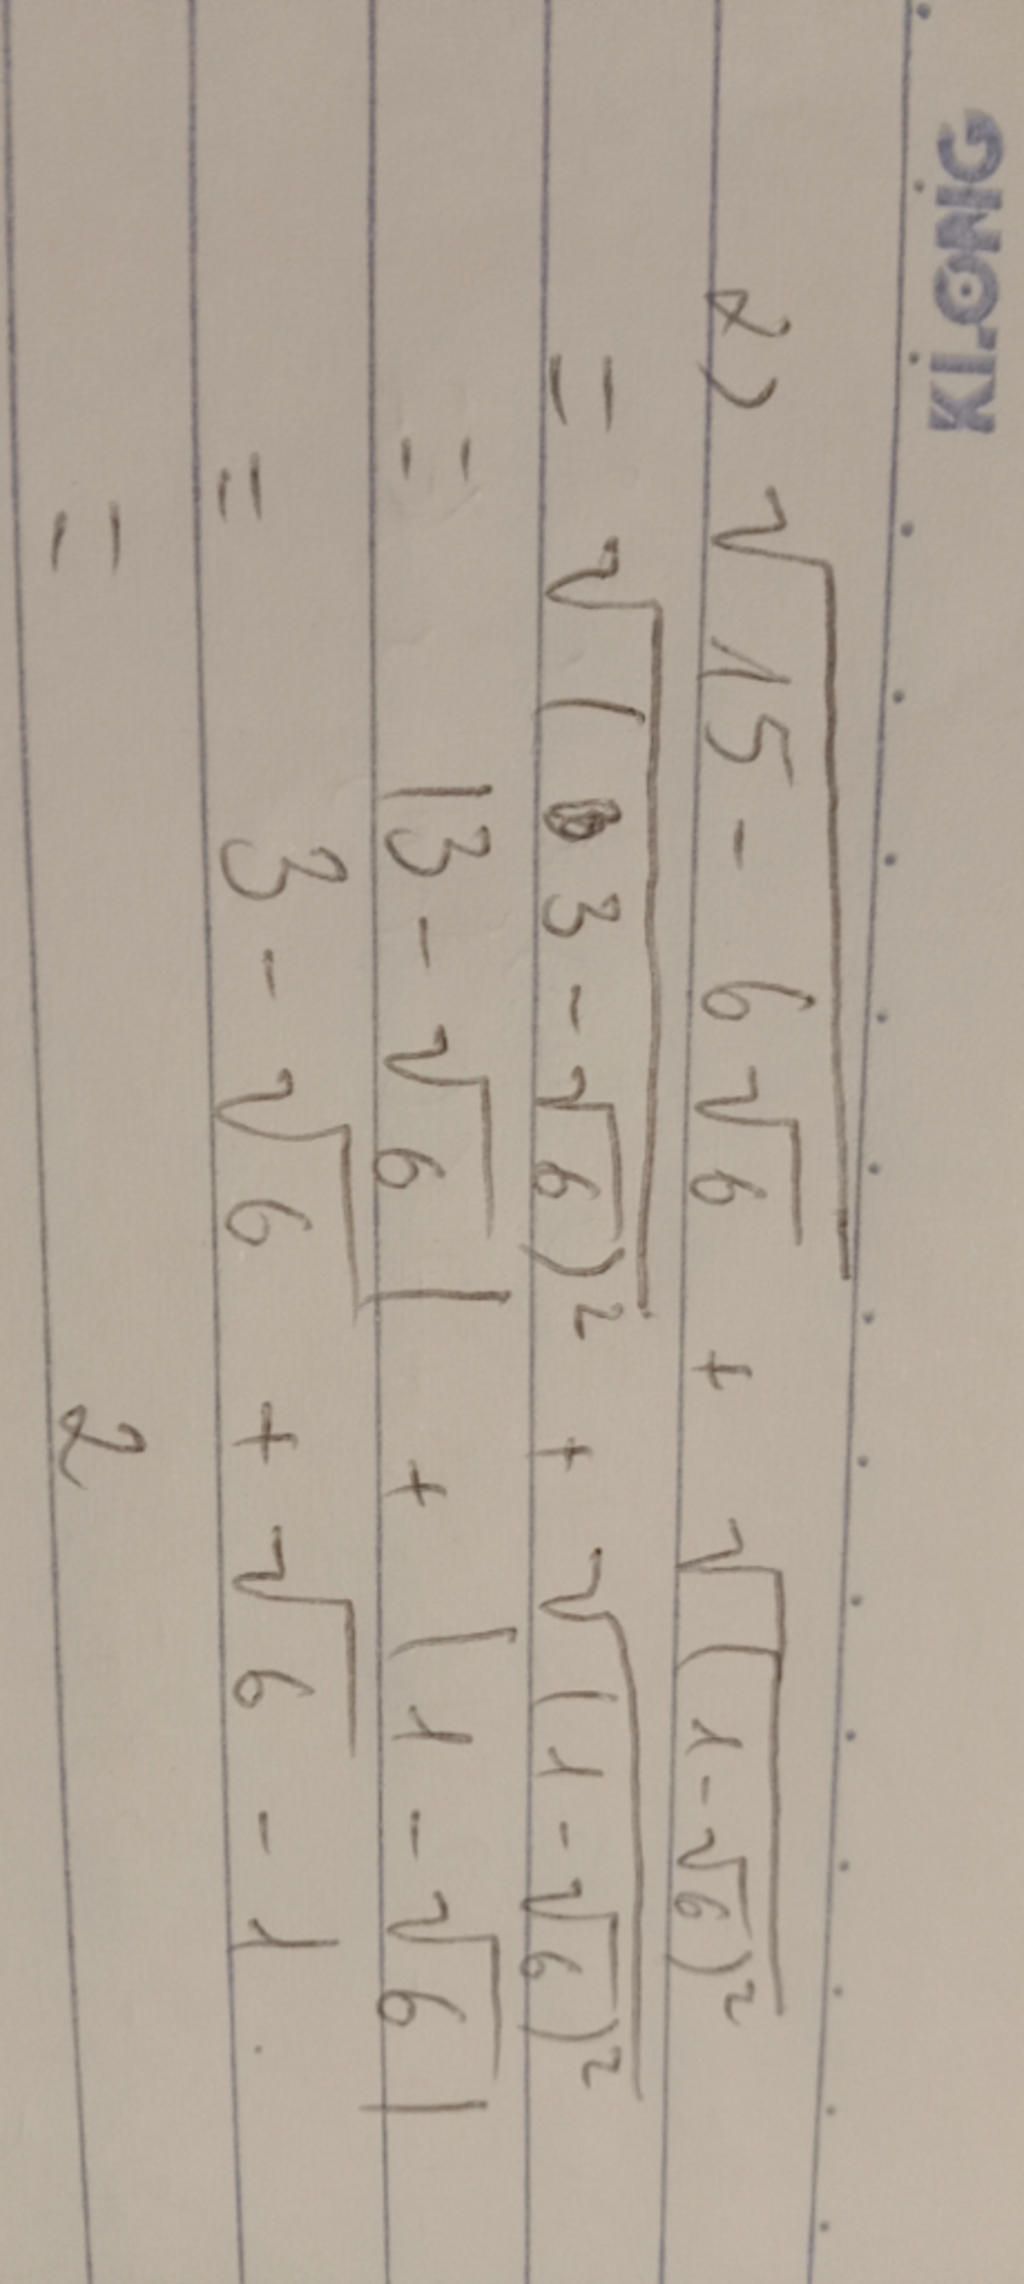 KiLONG
2) √(15 - 6√6) + √((1 - √6)²)
= √((3 - √6)²) + √((1 - √6)²)
= |3 - √6| + |1 - √6|
= 3 - √6 + √6 - 1
= 2